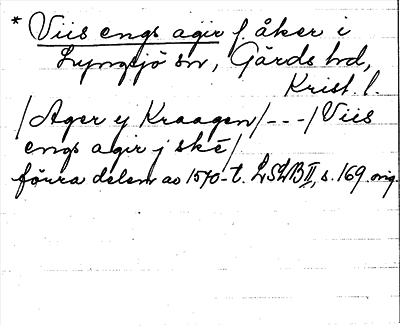 * Viis engs agir f. åker i
Lyngsjö sn, Gärds hd,
Krist. l.
/Ager y Kraagen/---/Viis
engs agir j ske/
förra delen av 1570-t. LSLB II, s. 169. orig.